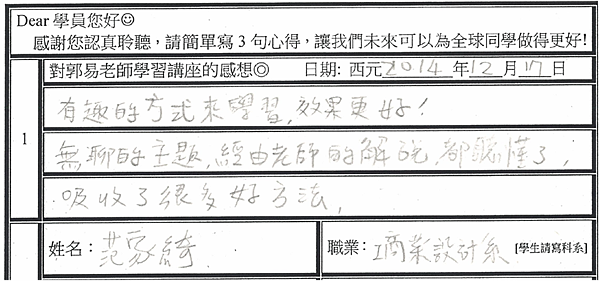 Dear 學員您好☺
感謝您認真聆聽，請簡單寫 3 句心得，讓我們未來可以為全球同學做得更好!
對郭易老師學習講座的感想◎ 日期: 西元2014年12月17日
1
有趣的方式來學習,效果更好!
無聊的主題,經由老師的解說,都聽懂了,
吸收了很多好方法,
姓名：范家綺
職業：工商業設計系 [學生請寫科系]